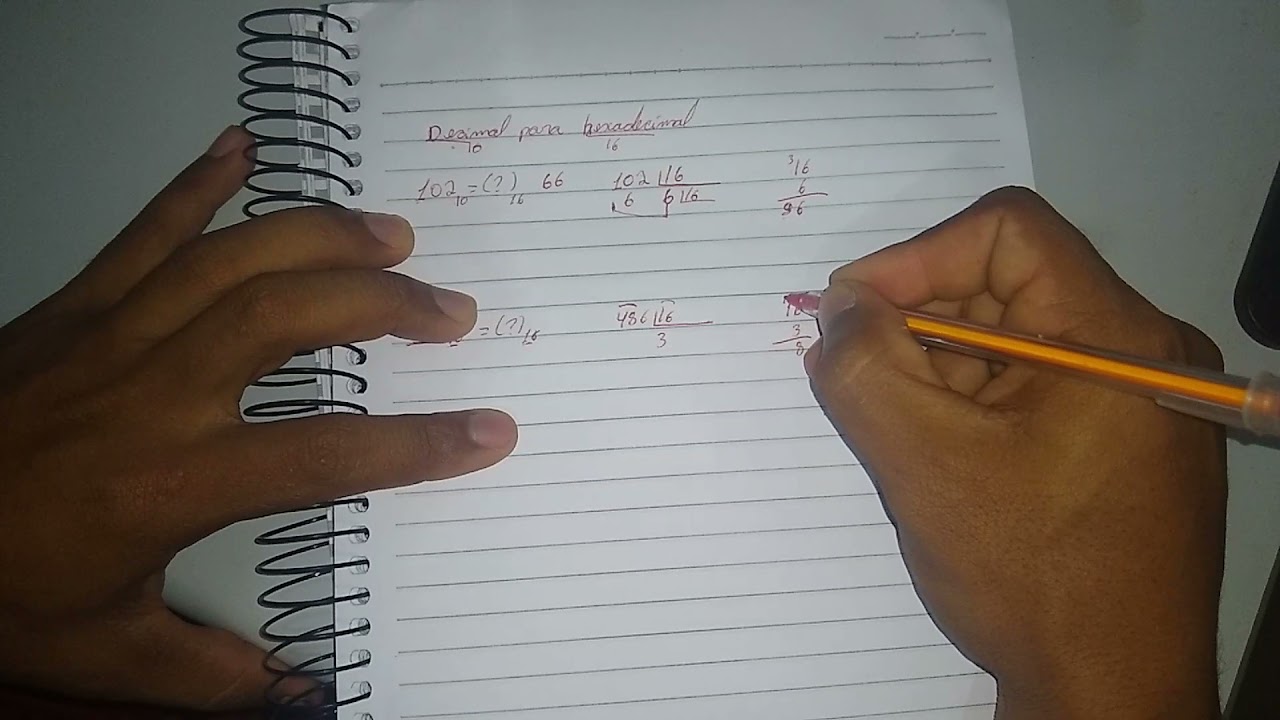 Decimal para hexadecimal
10 16
102₁₀ = (?)₁₆ 66 102 16 ³16
6 6 16 6
96
= (?)₁₆ 486 16
3 3
8